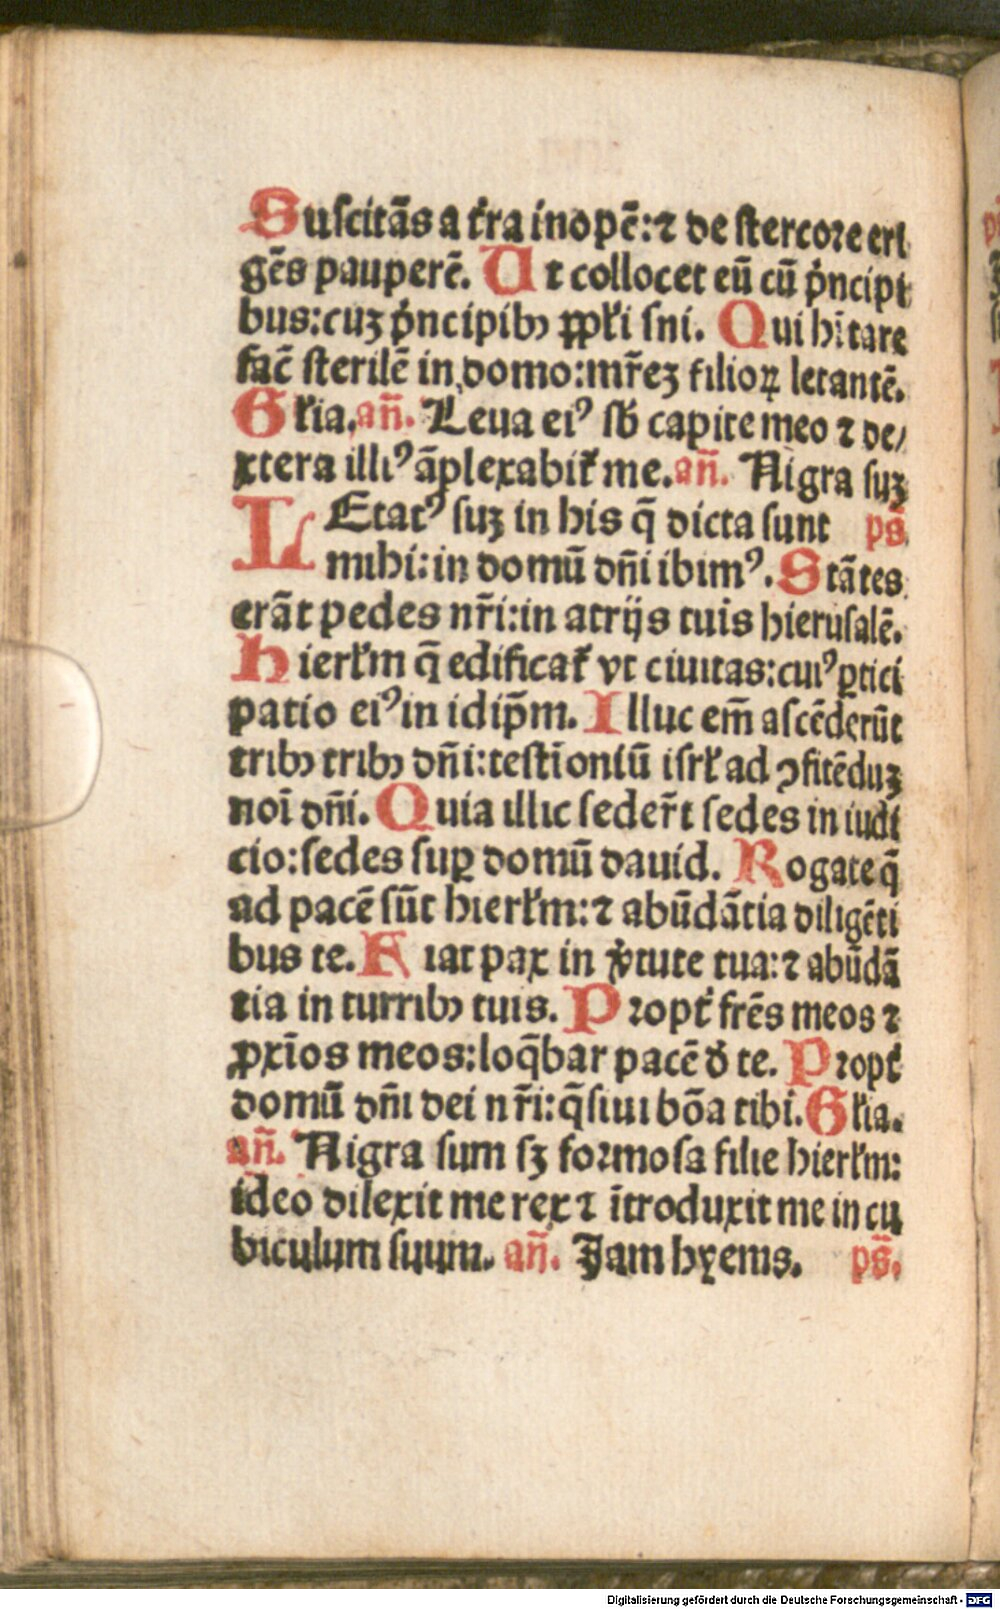 Suscitãs a t̃ra inopẽ: ⁊ de stercore eri
gẽs pauperẽ. Ut collocet eũ cũ p̃ncipi
bus: cuꝫ p̃ncipibꝰ ppl̃i sni. Qui hĩtare
facẽ sterilẽ in domo: mr̃eꝫ filioꝝ letantẽ.
Gl̃ia. añ. Leua eiꝰ sb̃ capite meo ⁊ de/
xtera illiꝰ ãplexabit̃ me. añ. Nigra suꝫ
LEtatꝰ suꝫ in his q̃ dicta sunt ps̃.
mihi: in domũ dñi ibimꝰ. Stãtes
erãt pedes nr̃i: in atrijs tuis hierusalẽ.
Hierl̃m q̃ edificat̃ vt ciuitas: cuiꝰ ꝑtici
patio eiꝰ in idip̃m. Illuc em̃ ascẽderũt
tribꝰ tribꝰ dñi: testĩoniũ isrl̃ ad ꝯfitẽduꝫ
noĩ dñi. Quia illic seder̃t sedes in iudi
cio: sedes suꝑ domũ dauid. Rogate q̃
ad pacẽ sũt hierl̃m: ⁊ abũdãtia diligẽti
bus te. Fiat pax in v̓tute tua: ⁊ abũdã
tia in turribꝰ tuis. Propt̃ fr̃ẽs meos ⁊
ꝓxĩos meos: loq̃bar pacẽ d̓ te. Propt̃
domũ dñi dei nr̃i: q̃siui bõa tibi. Gl̃ia.
añ. Nigra sum sꝫ formosa filie hierl̃m:
ideo dilexit me rex ⁊ ĩtroduxit me in cu
biculum suum. añ. Jam hyems. ps̃.
Digitalisierung gefördert durch die Deutsche Forschungsgemeinschaft - DFG